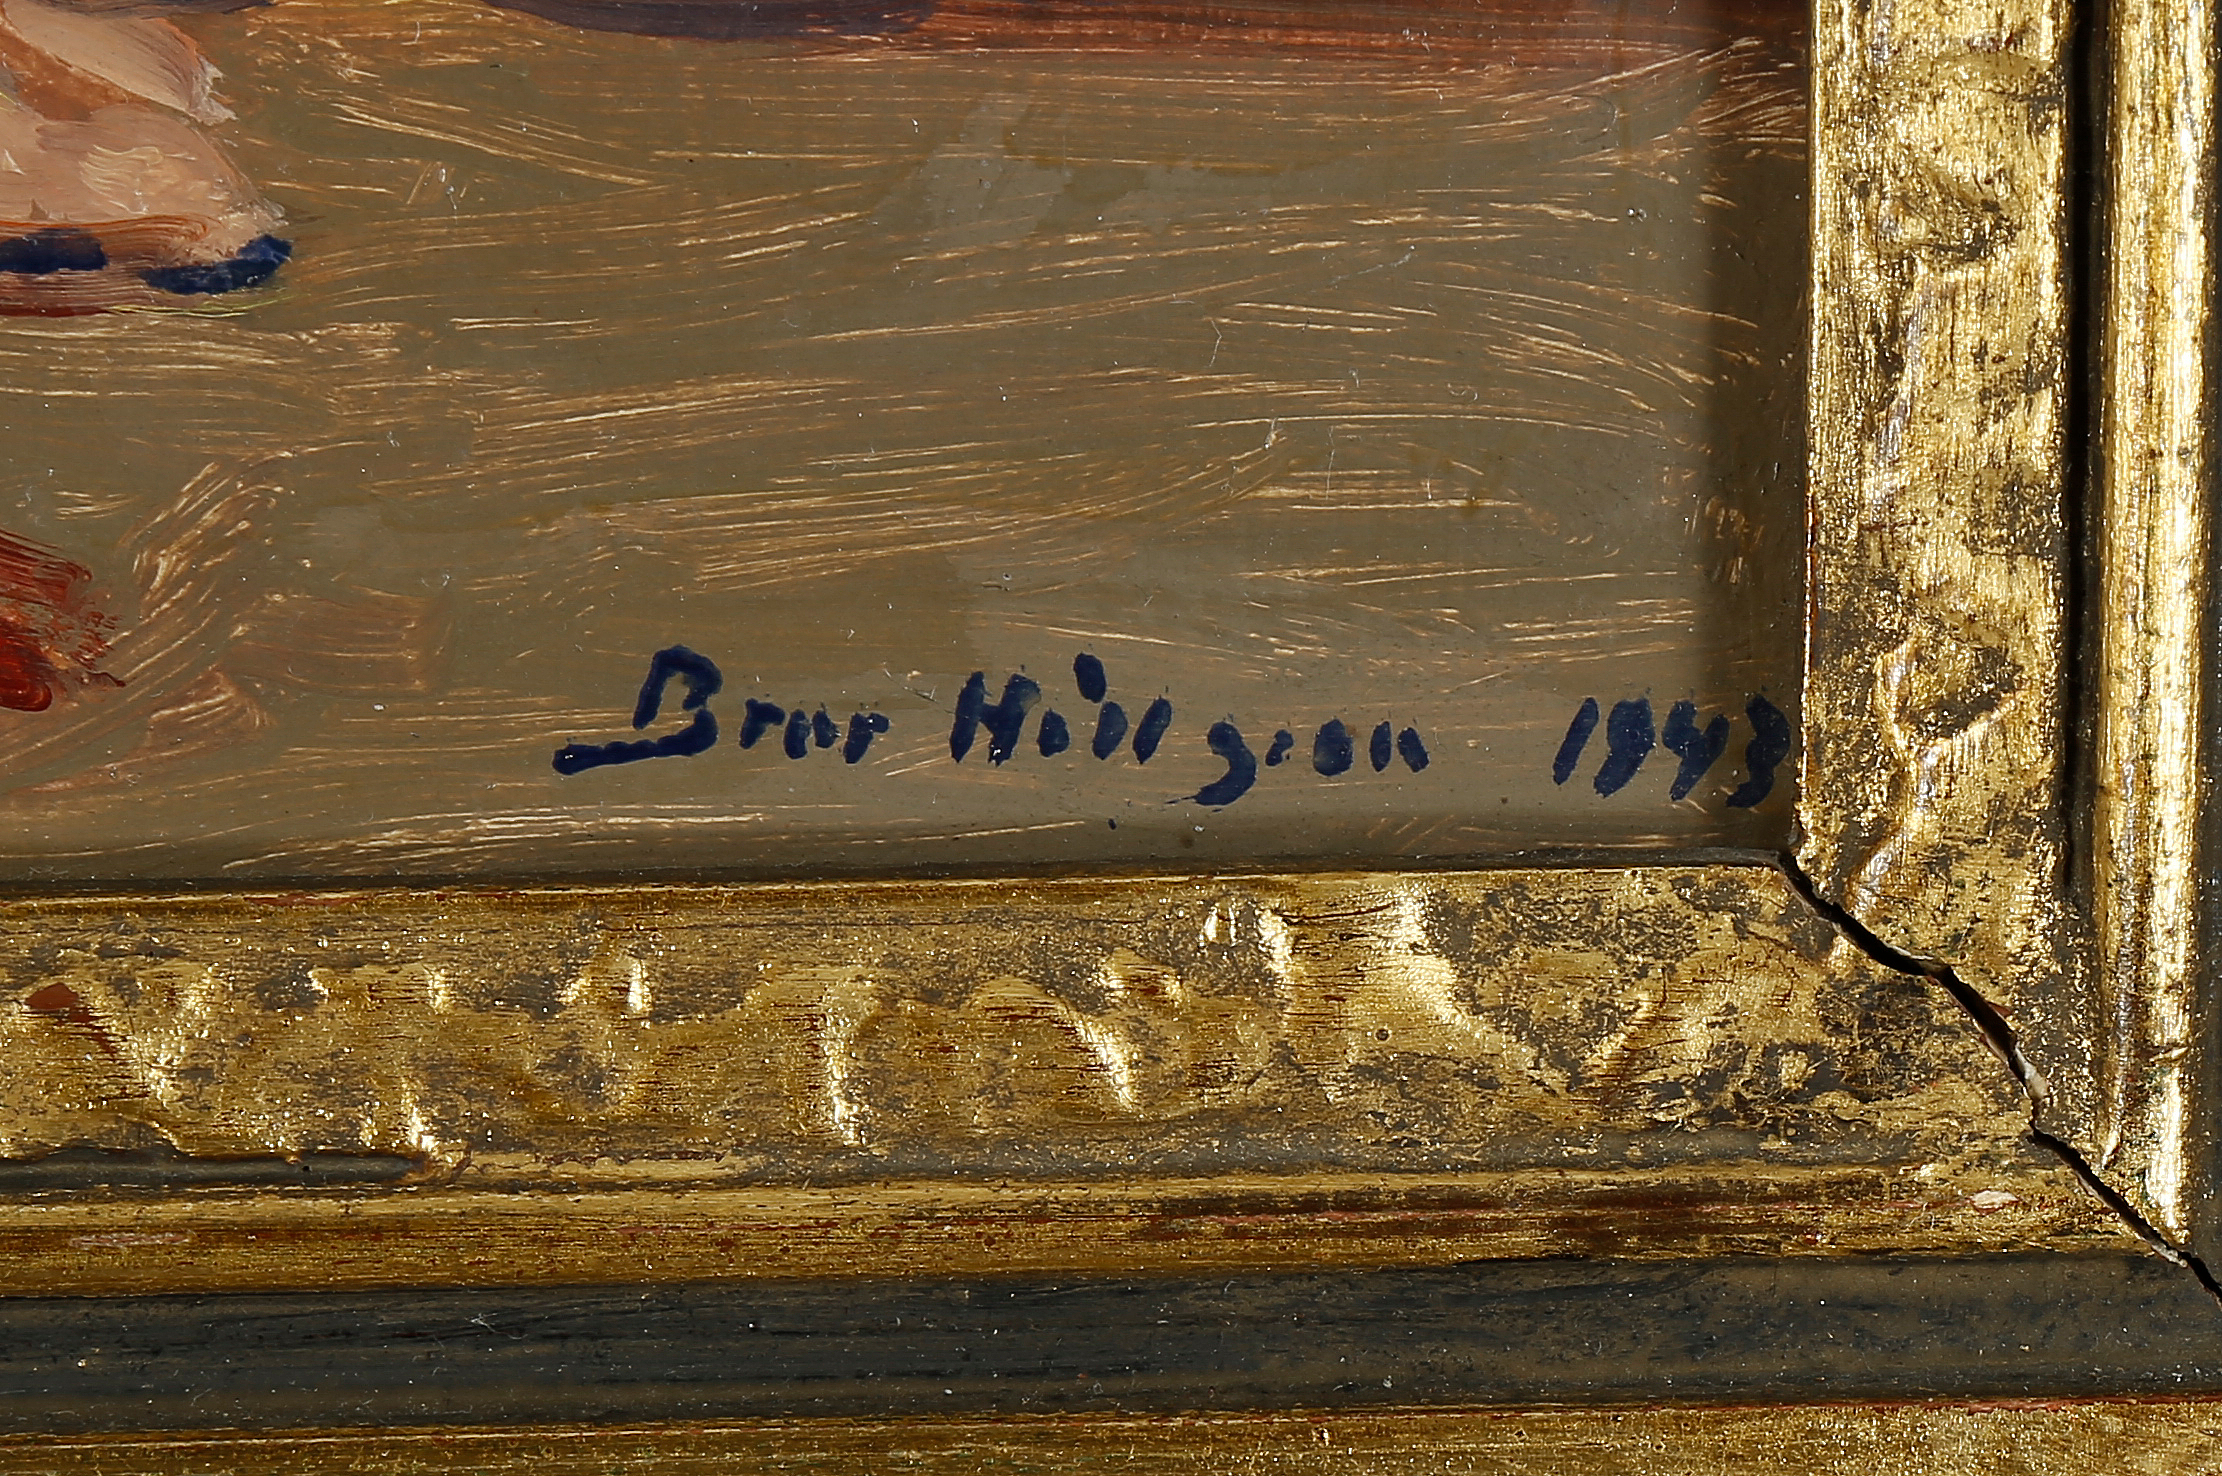 Bror Hillgren 1943